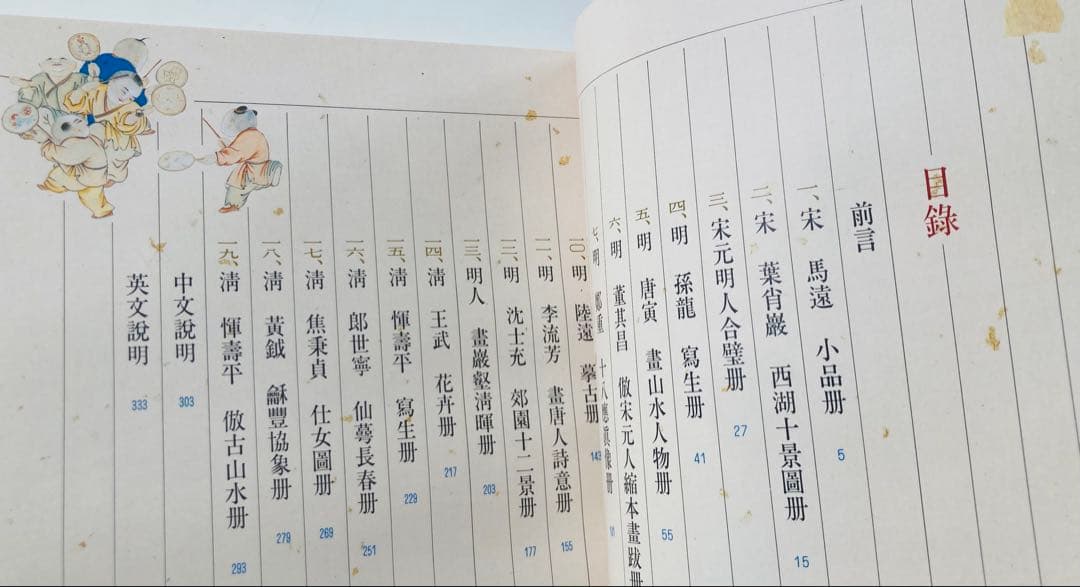 目錄
前言
一、宋 馬遠 小品册 5
二、宋 葉肖巖 西湖十景圖册 15
三、宋元明人合璧册 27
四、明 孫龍 寫生册 41
五、明 唐寅 畫山水人物册 55
六、明 董其昌 倣宋元人縮本畫跋册
七、明 重 十八應眞像册 91
一〇、明 陸遠 摹古册 143
一一、明 李流芳 畫唐人詩意册 155
一二、明 沈士充 郊園十二景册 177
一三、明人 畫巖壑淸暉册 203
一四、淸 王武 花卉册 217
一五、淸 惲壽平 寫生册 229
一六、淸 郎世寧 仙萼長春册 251
一七、淸 焦秉貞 仕女圖册 269
一八、淸 黃鉞 龢豐協象册 279
一九、淸 惲壽平 倣古山水册 293
中文說明 303
英文說明 333